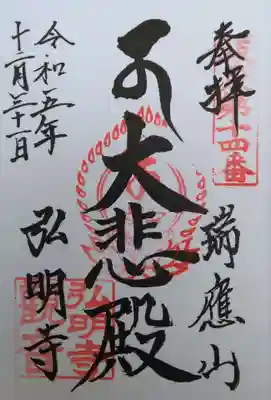 奉拝
坂東第十四番
瑞應山
大悲殿
令和五年
十二月三十一日
弘明寺
弘明寺
觀音